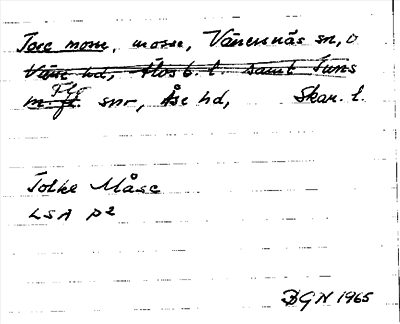 Tore mom, mosse, Vänersnäs sn,
Väne hd, Älvsb. l. samt Tuns
m. fl. snr, Åse hd, Skar. l.
Tolke Måse
LSA P2
BGN 1965